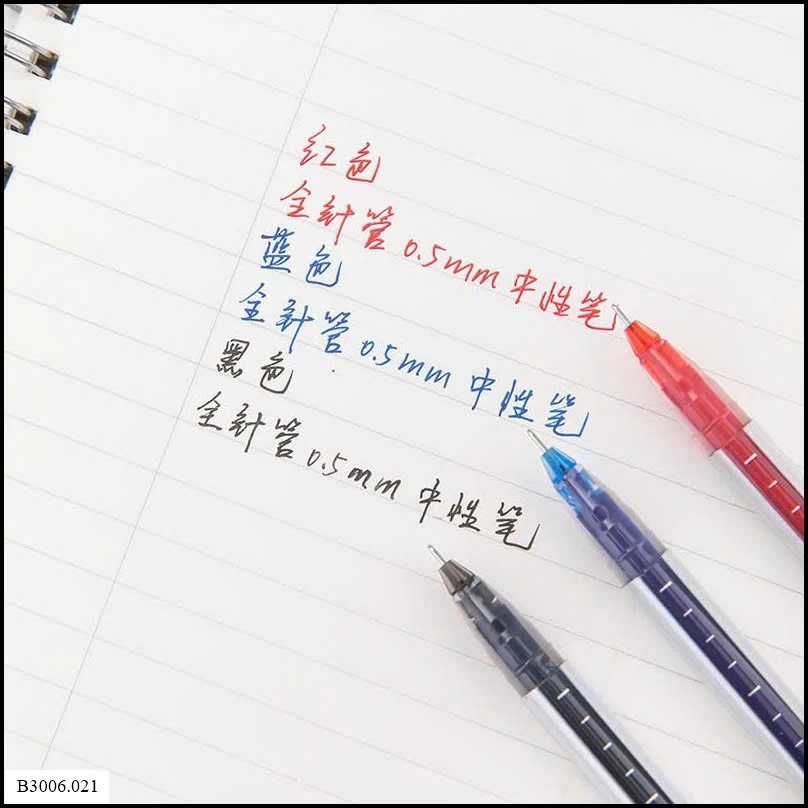 红色
全针管0.5mm中性笔
蓝色
全针管0.5mm中性笔
黑色
全针管0.5mm中性笔
B3006.021